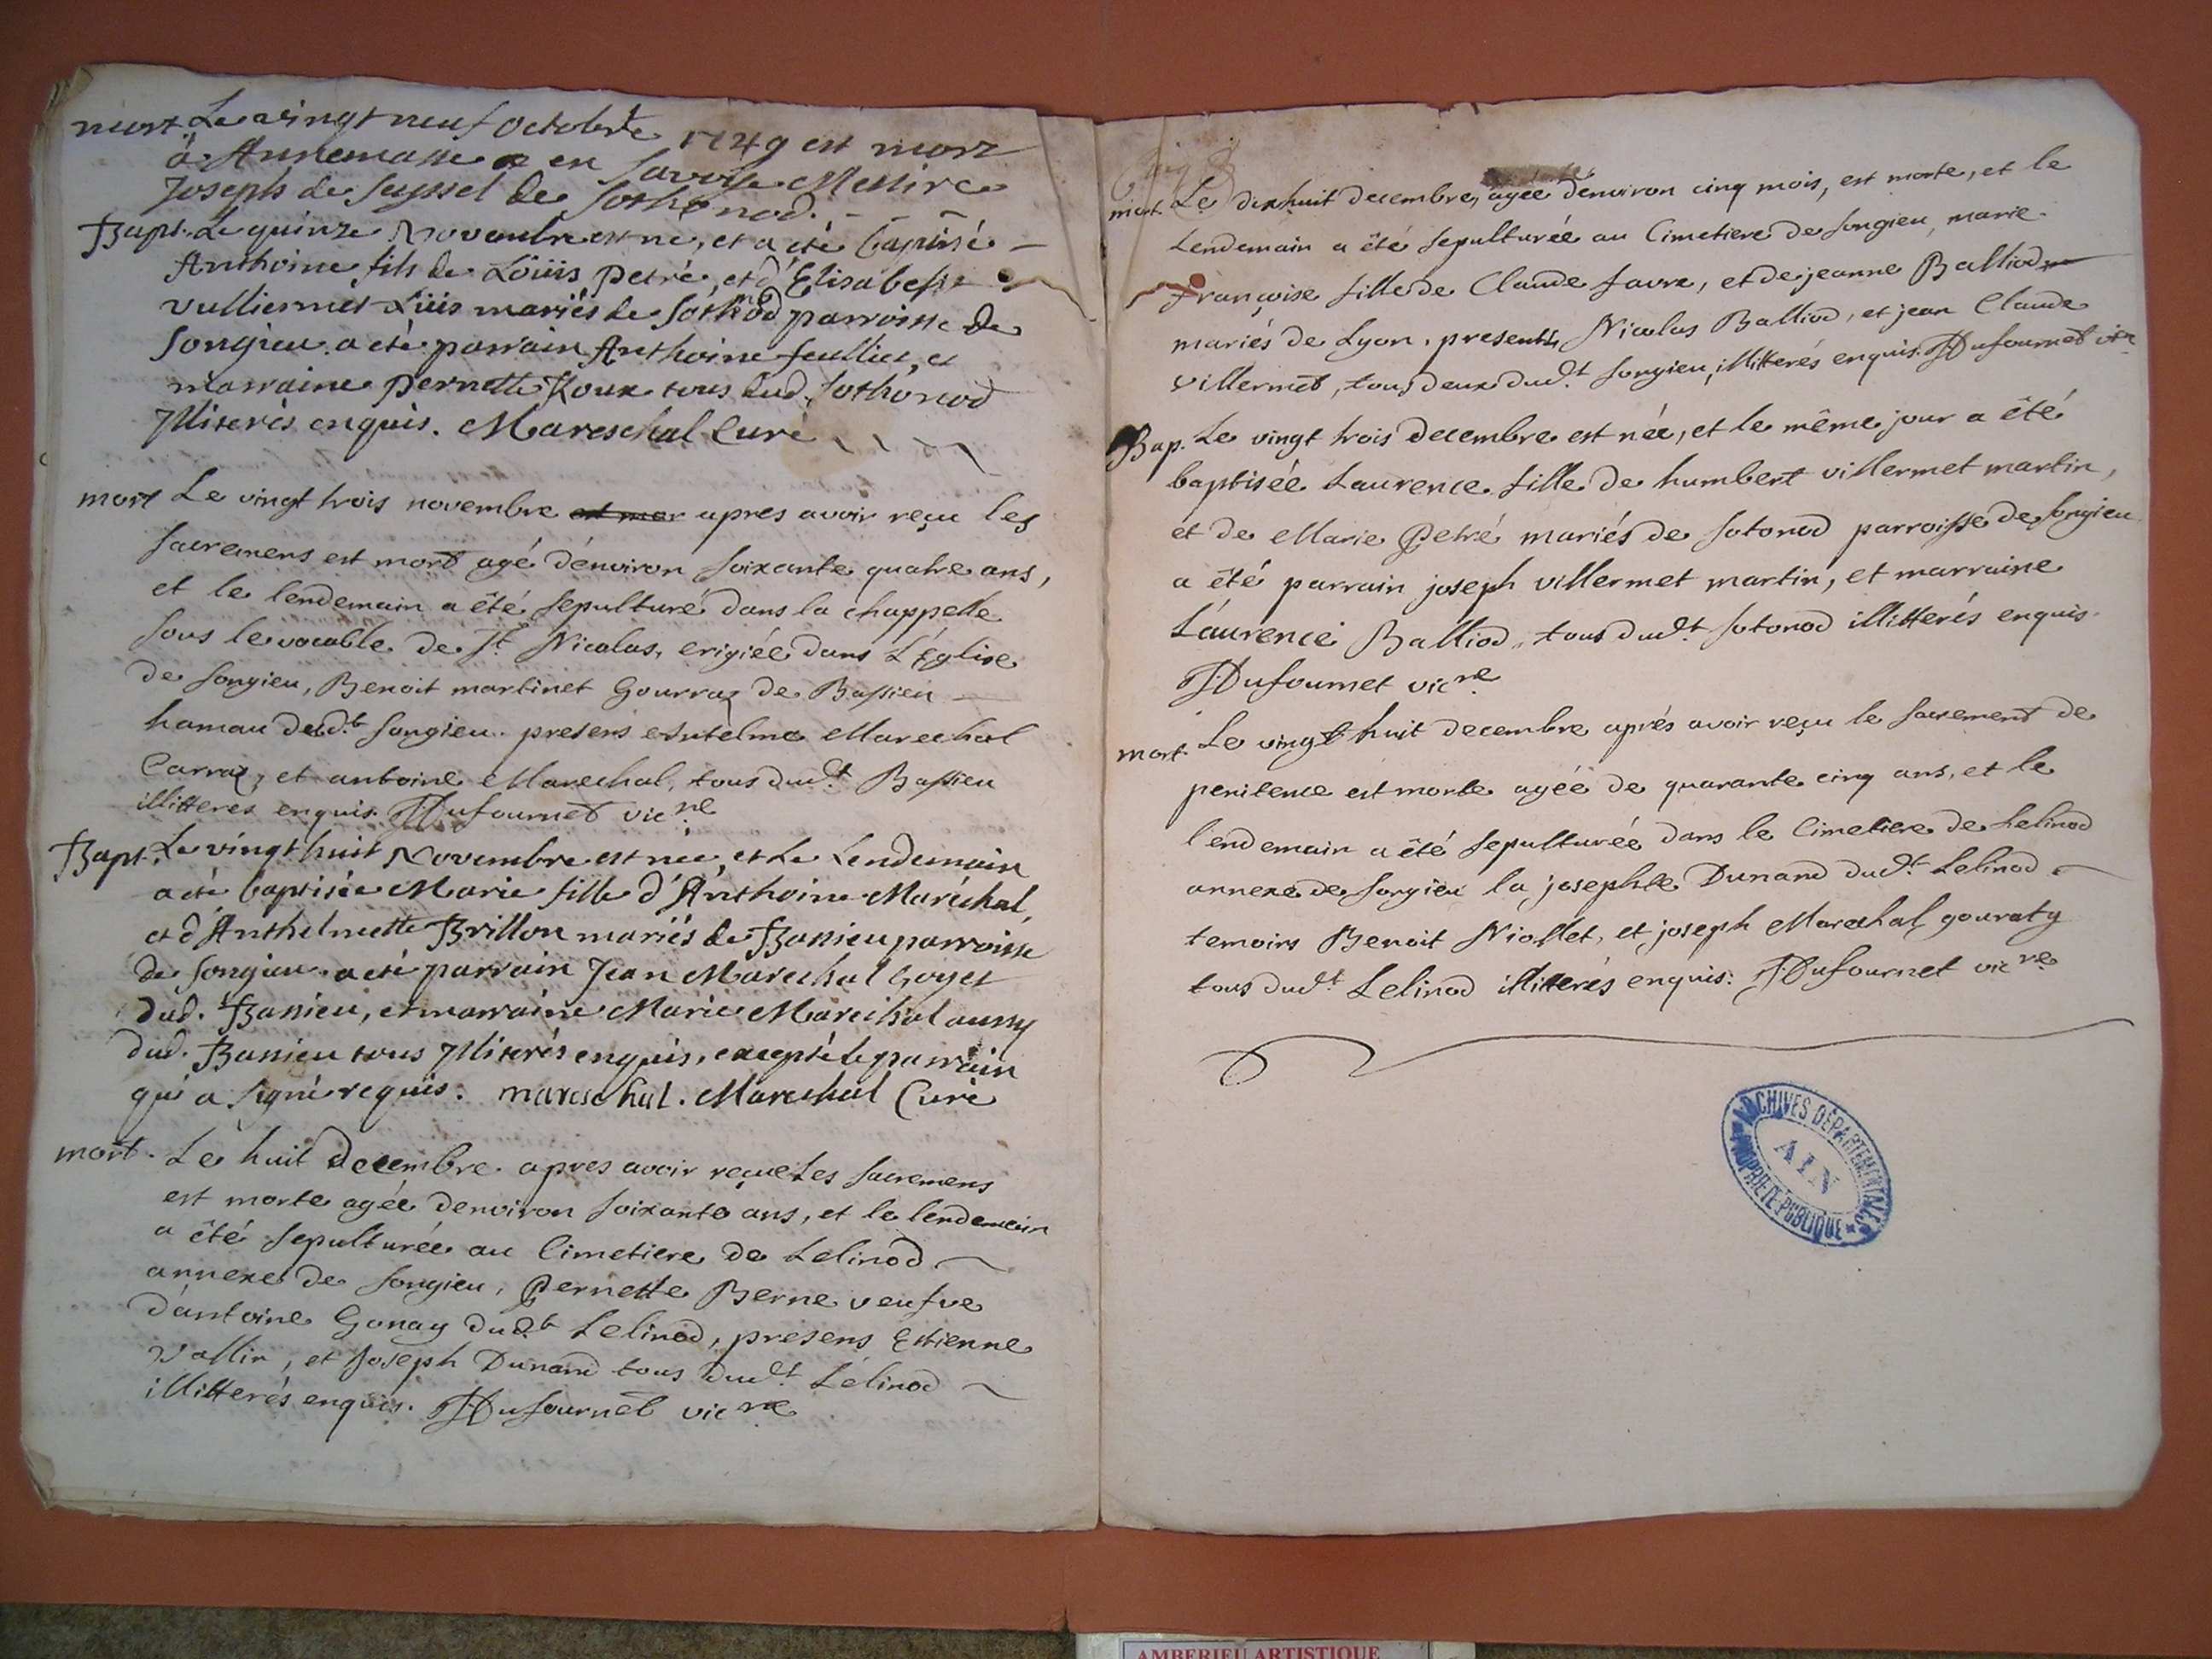 mort Le vingt neuf Octobre 1749 est mort
à Annemasse en Savoÿe Messire
Joseph de Seyssel de Sothonod.
Bapt. Le quinze Novembre est né, et a eté baptisé
Anthoine fils de Loüis Petré, et d'Elisabeth
Vulliermet Luis mariés de Sothod parroisse de
Songieu. a eté parrain Anthoine feulliet, et
marraine Pernette Roux tous dud. Sothonod
Illiterés enquis. Mareschal Curé
mort Le vingt trois novembre est mor apres avoir reçu les
sacremens est mort agé d'environ soixante quatre ans,
et le lendemain a êté sepulturé dans la chappelle
sous le vocable de St. Nicolas, erigiée dans L'Église
de Songieu, Benoit martinet Gourraz de Bassieu
hamau dud.t Songieu. presens Antelme Marechal
Carraz, et antoine Marechal, tous dud.t Bassieu
illitteres enquis. JDufournet vic.re
Bapt. Le vingt huit Novembre est née, et Le Lendemain
a eté baptisée Marie fille d'Anthoine Maréchal,
et d'Anthelmette Brillon mariés de Bassieu parroisse
de Songieu. a eté parrain Jean Marechal Goyet
dud. Bassieu, et marraine Marie Marechal aussy
dud. Bassieu tous Illiterés enquis, excepté le parrain
qui a signé requis. mareschal. Mareschal Curé
mort. Le huit Decembre. apres avoir reçue Les sacremens
est morte agée denviron soixante ans, et le lendemain
a êté sepulturée au Cimetiere de Lelinod
annexe de Songieu, Pernette Berne veufve
d'antoine Gonay dud.t Lelinod, presens Estienne
Vallin, et Joseph Dunand tous dud.t Lélinod
illitterés enquis. JDufournet vic.re
mort. Le dixhuit decembre, agée d'environ cinq mois, est morte, et le
Lendemain a êté sepulturée au Cimetiere de Songieu, marie
françoise fille de Claude favre, et de jeanne Balliod
mariés de Lyon, presents Nicolas Balliod, et jean Claude
villermet, tous deux dud.t Songieu, illitterés enquis. JDufournet vic.re
Bap. Le vingt trois decembre est née, et le même jour a êté
baptisée Laurence fille de humbert villermet martin,
et de Marie Petré mariés de Sotonod parroisse de Songieu
a êté parrain joseph villermet martin, et marraine
Laurence Balliod, tous dud.t Sotonod illitterés enquis.
JDufournet vic.re
mort. Le vingt huit decembre aprés avoir reçu le sacrement de
penitence est morte agée de quarante cinq ans, et le
lendemain a êté sepulturée dans le Cimetiere de Lelinod
annexe de Songieu la josephte Dunand dud.t Lelinod
temoins Benoit Niollet, et joseph Marechal gouraty
tous dud.t Lelinod illitterés enquis. JDufournet vic.re
ARCHIVES DÉPARTEMENTALES
AIN
PROPRIÉTÉ PUBLIQUE
AMBERIEU ARTISTIQUE